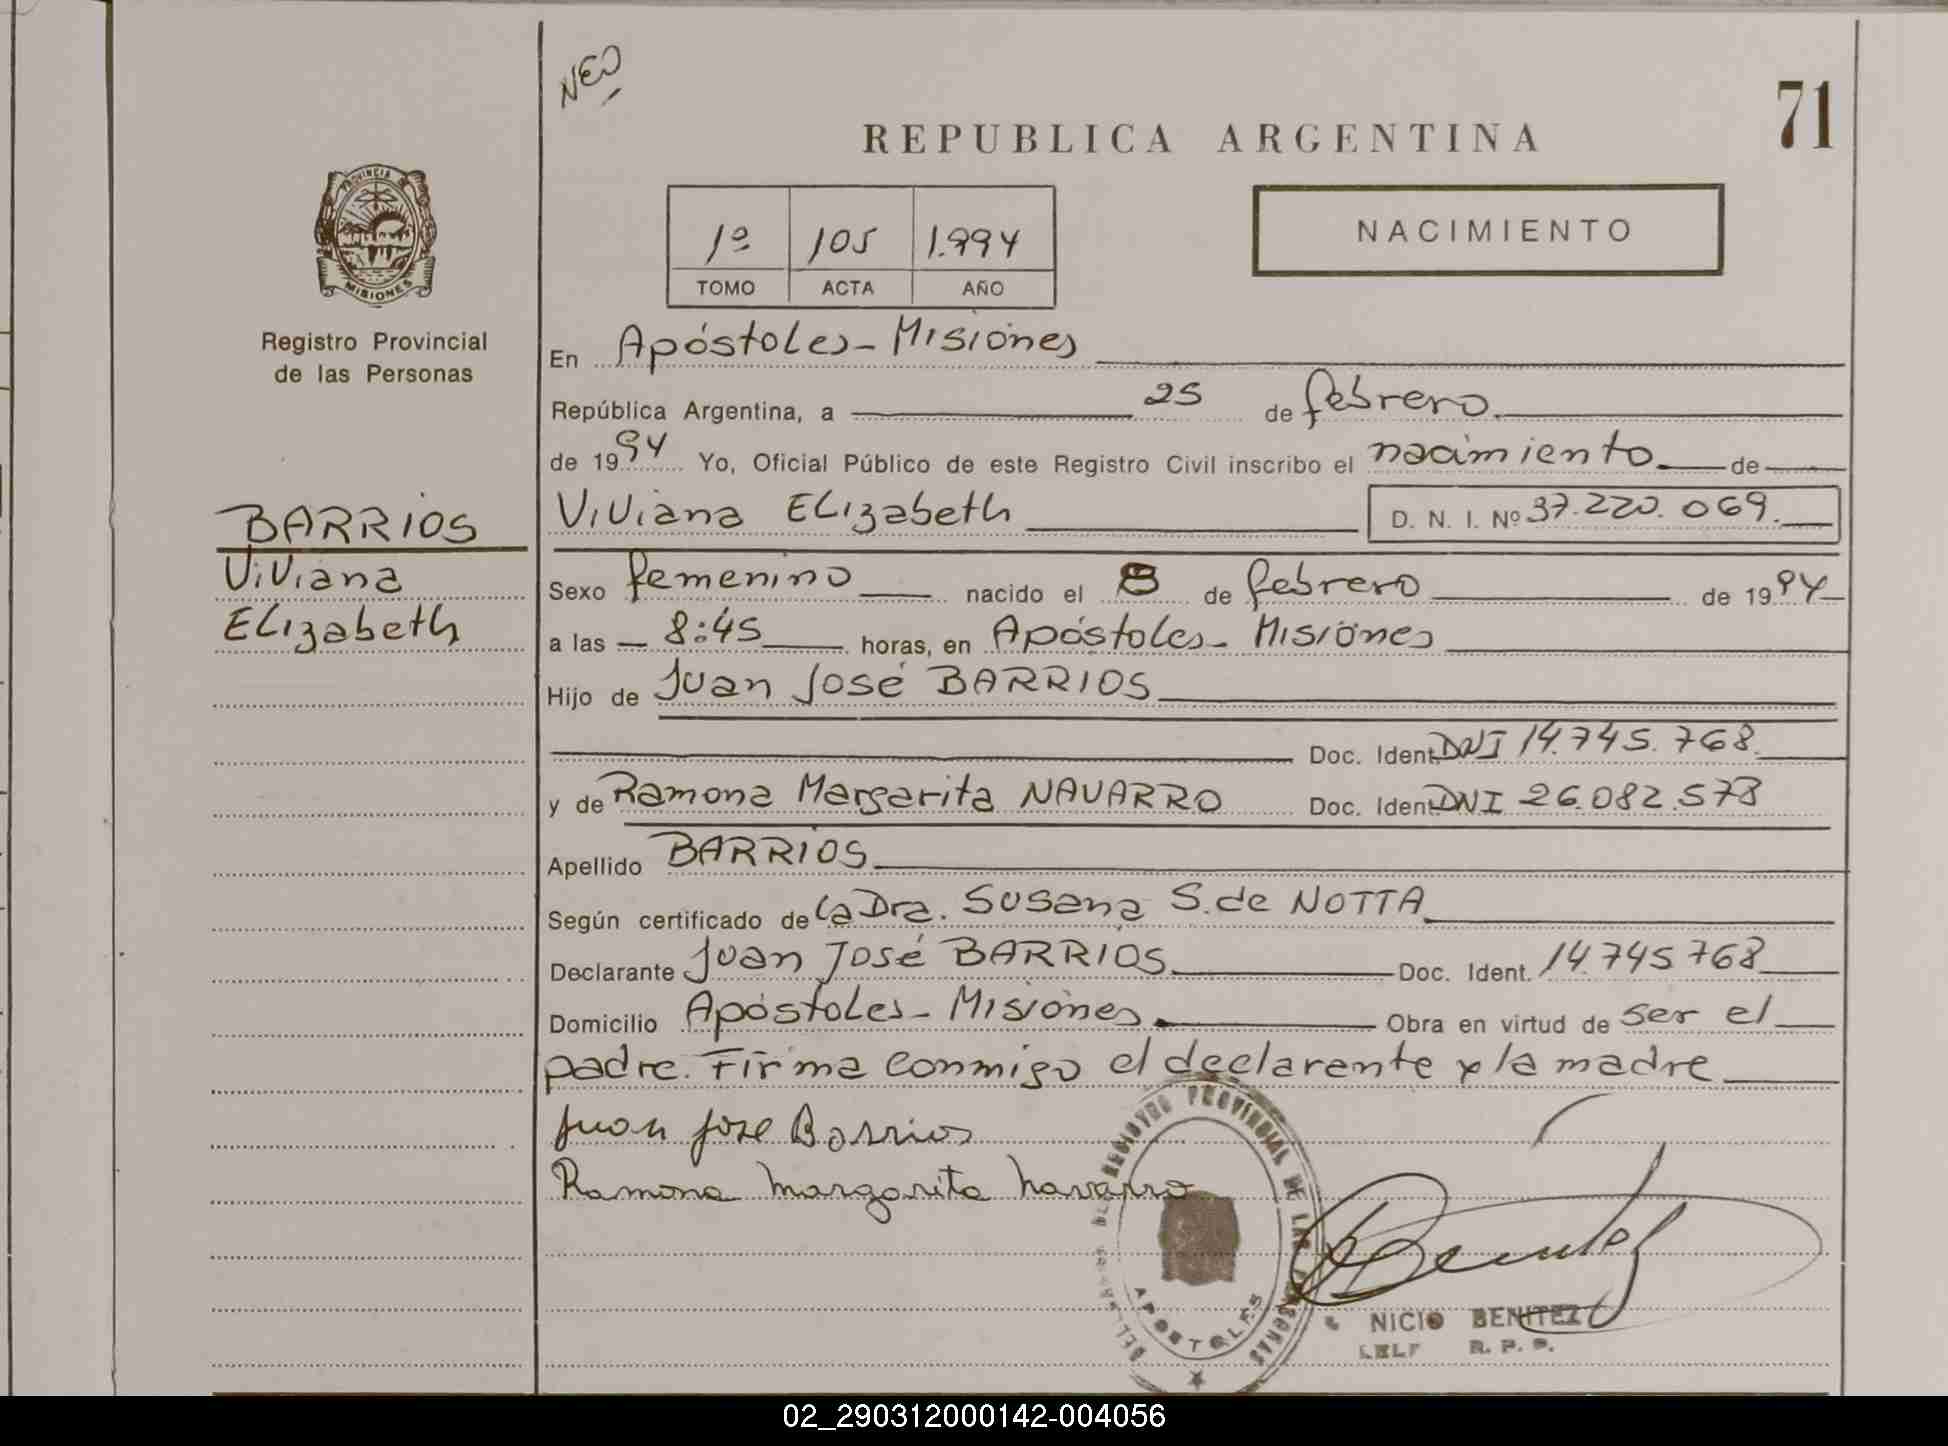 NEO
71
REPUBLICA ARGENTINA
PROVINCIA DE
MISIONES
Registro Provincial
de las Personas
1º 105 1.994
TOMO ACTA AÑO
NACIMIENTO
En Apóstoles - Misiones
República Argentina, a 25 de febrero
de 1994 Yo, Oficial Público de este Registro Civil inscribo el nacimiento de
BARRIOS
Viviana
Elizabeth
Viviana Elizabeth D. N. I. Nº 37.220.069.
Sexo femenino nacido el 8 de febrero de 1994
a las 8:45 horas, en Apóstoles - Misiones
Hijo de Juan José BARRIOS
Doc. Ident. DNI 14.745.768
y de Ramona Margarita NAVARRO Doc. Ident. DNI 26.082.578
Apellido BARRIOS
Según certificado de la Dra. Susana S. de NOTTA
Declarante Juan José BARRIOS Doc. Ident. 14.745.768
Domicilio Apóstoles - Misiones Obra en virtud de ser el
padre. Firma conmigo el declarante y la madre
Juan Jose Barrios
Ramona Margarita Navarro
REGISTRO PROVINCIAL DE LAS PERSONAS
APOSTOLES
Benitez
NICIO BENITEZ
R. P. P.
02_290312000142-004056